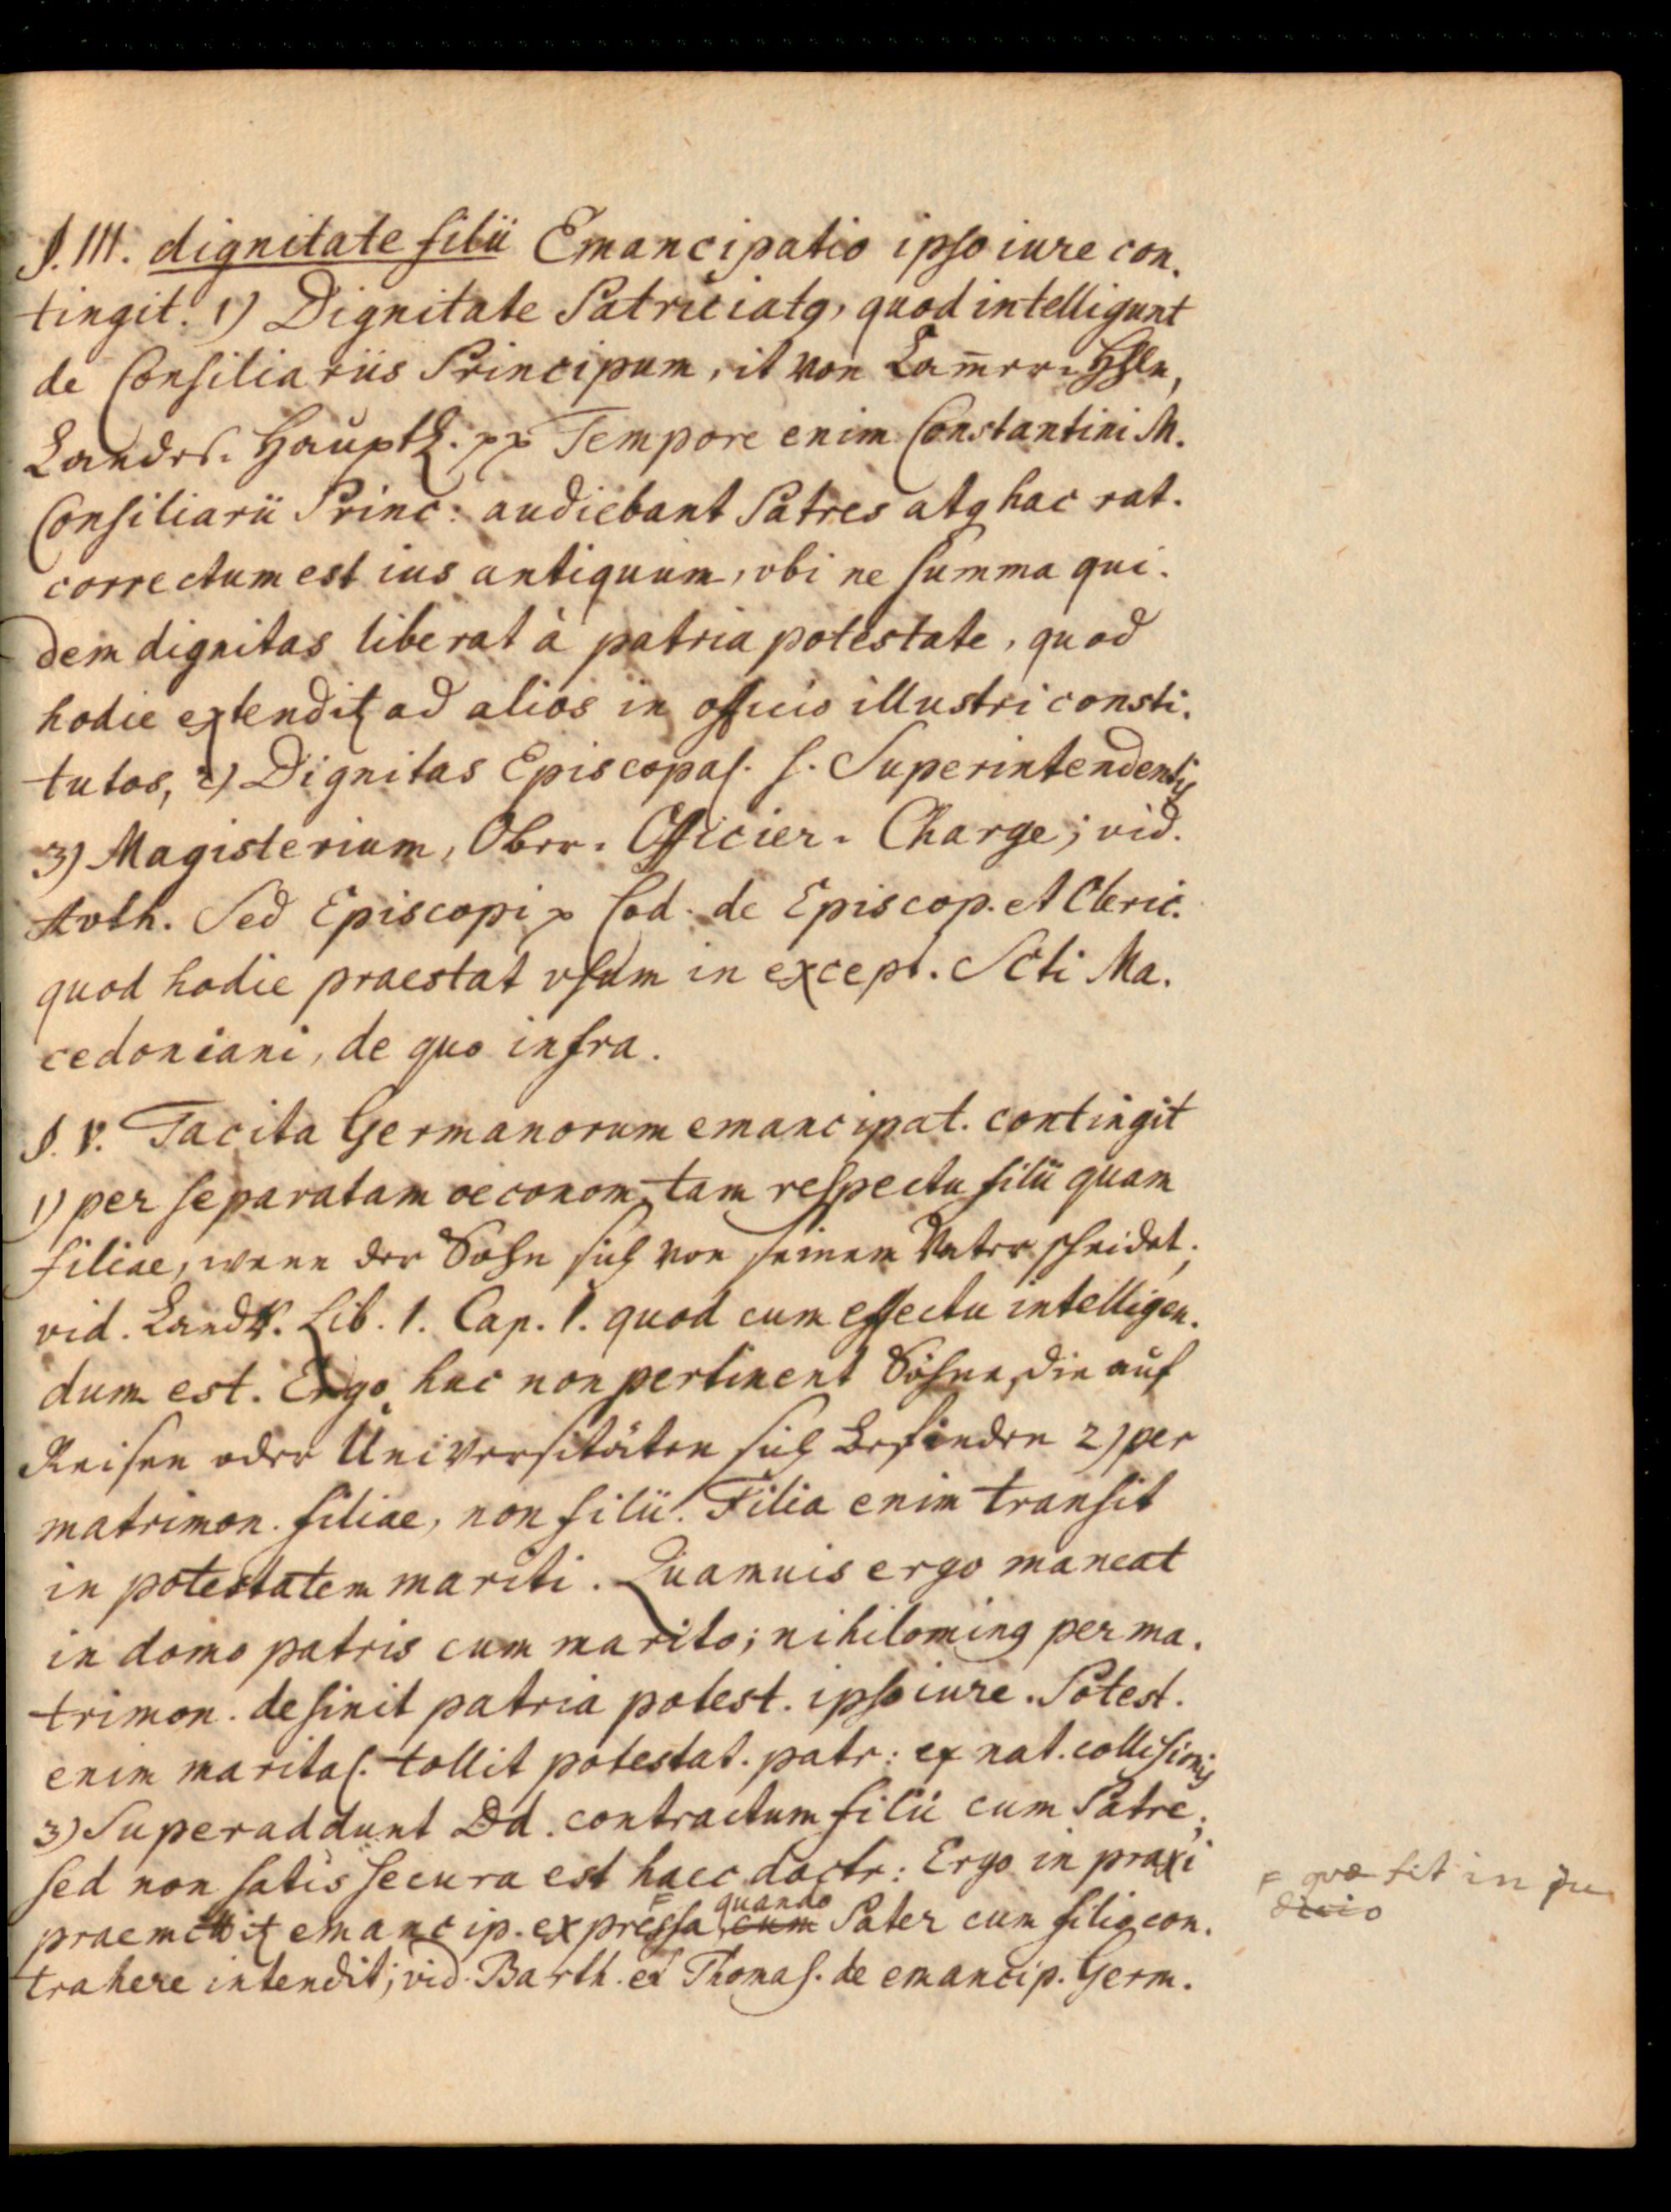 §. III. dignitate filii Emancipatio ipso iure con-
tingit. 1) Dignitate Patriciatq, quod intelligunt
de Consiliariis Principum, it von
Landes-Hauptl. pp Tempore enim Constantini M.
Consiliarii Princ: audiebant Patres atq hac rat.
correctum est ius antiquum, vbi ne summa qui-
dem dignitas liberat à patria potestate, quod
hodie extendit ad alios in officio illustri consti-
tutos, 2) Dignitas Episcopal. s. Superintendentis
3) Magisterium, Ober-Officier-Charge; vid.
Avth. Sed Episcopi p Cod. de Episcop. et Cleric.
quod hodie praestat vsum in except. Scti Ma-
cedoniani, de quo infra.
§. V. Tacita Germanorum emancipat. contingit
1) per separatam oeconom. tam respectu filii quam
filiae, wenn der Sohn sich von seinem Vater scheidet;
vid. LandR. Lib. 1. Cap. 1. quod cum effectu intelligen-
dum est. Ergo huc non pertinent Söhne, die auf
Reisen oder Universitäten sich befinden 2) per
matrimon. filiae, non filii. Filia enim transit
in potestatem mariti. Quamuis ergo maneat
in domo patris cum marito; nihilominq per ma-
trimon. desinit patria potest. ipso iure. Potest.
enim marital. tollit potestat. patr: ex nat. collisionis
3) Superaddunt Dd. contractum filii cum Patre;
sed non satis secura est haec doctr: Ergo in praxi
praemittit emancip. expressa = cum quando Pater cum filio con-
trahere intendit; vid. Barth. et Thomas. de emancip. Germ.
= quae fit in ju
dicio